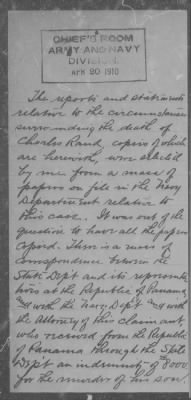 CHIEF'S ROOM
ARMY AND NAVY
DIVISION.
APR 20 1910
The reports and statements
relative to the circumstances
surrounding the death of
Charles Rand, copies of which
are herewith, were asked
by me from a mass of
papers on file in the Navy
Department relative to
this case. It was out of the
question to have all the papers
copied. There is a mass of
correspondence between the
State Dep't and its representa
tives at the Republic of Panama,
and with the Navy Dep't and with
the Attorney of this claimant,
who received from the Republic
of Panama through the State
Dep't an indemnity of $5000
for the murder of his son.